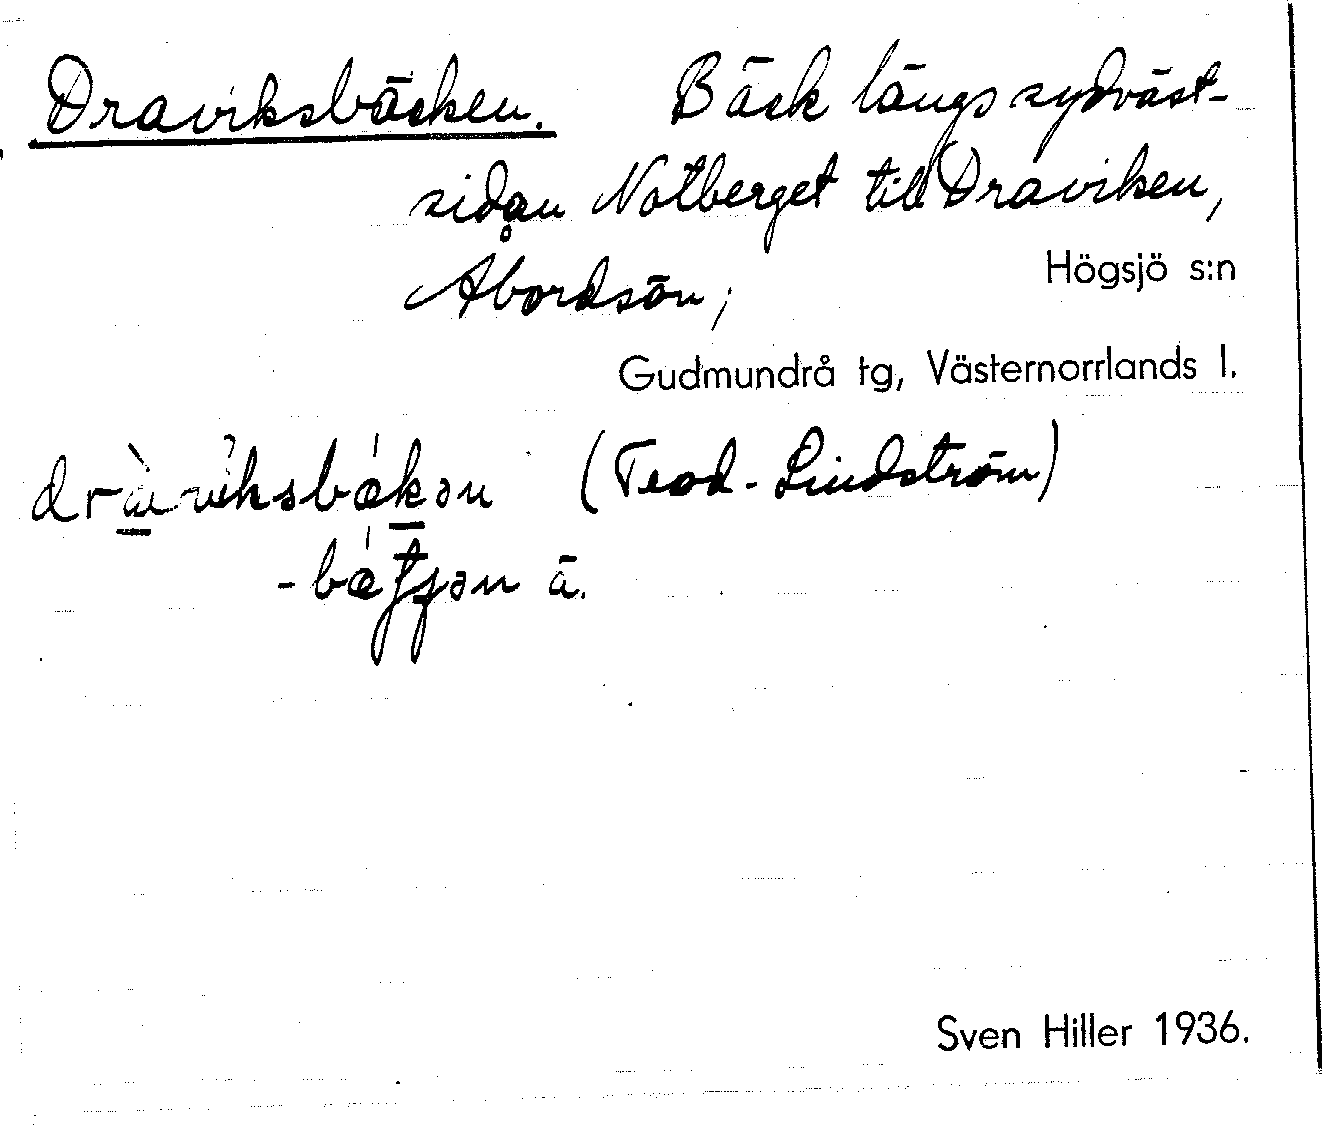 Draviksbäcken. Bäck längs sydväst-
sidan Notberget till Draviken,
Åbordsön,
Högsjö s:n
Gudmundrå tg, Västernorrlands l.
(Teod. Lindström)
ä.
Sven Hiller 1936.